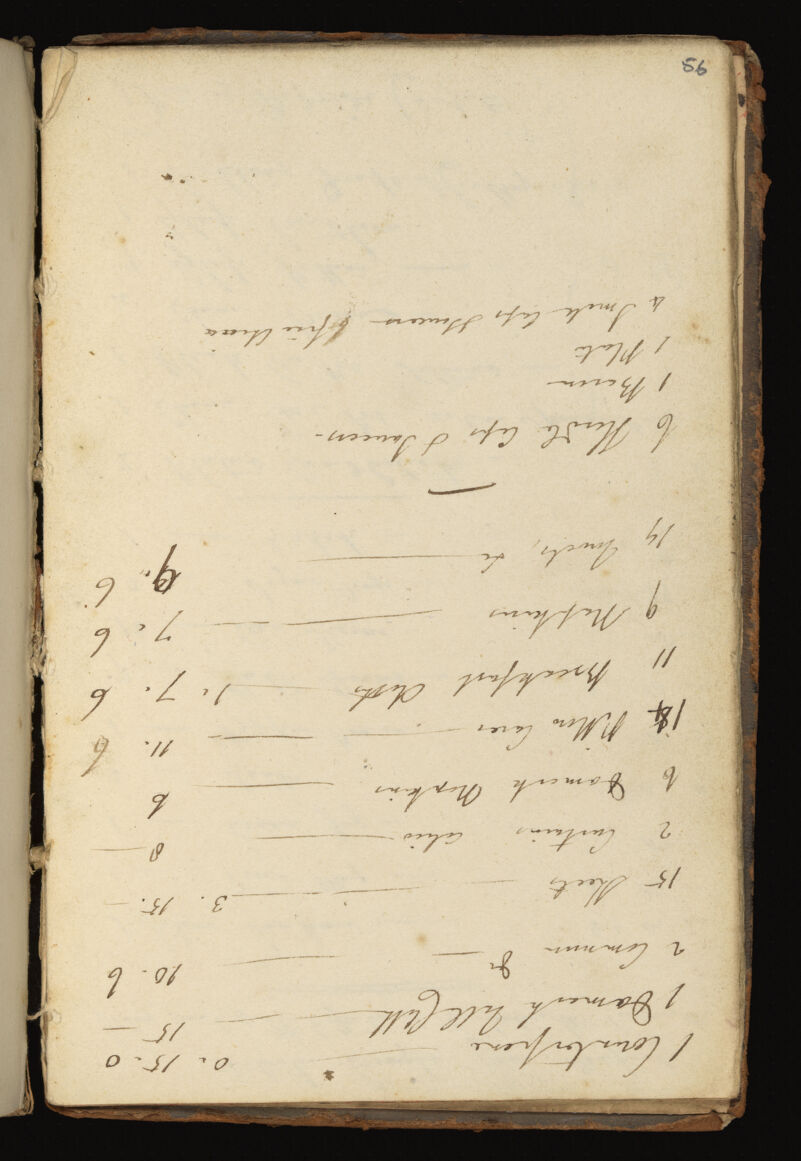 1 Counterpane — 0. 15. 0
1 Damask Table Cloth — 15 —
2 Common Do — 10. 6
15 Sheets — 3. 15. —
2 Curtains calico — 8 —
6 Damask Napkins — 6
Pillow Cases — 11. 6
11 Breakfast Cloths — 1. 7. 6
9 Napkins — 7. 6
14 Towels, &c — 9. 6
6 Handle Cups & Saucers -
1 Bason
1 Plate
4 Small Cups Saucers fine China
56